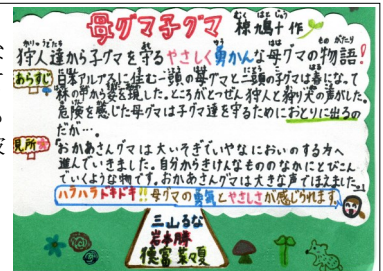 母グマ子グマ 椋鳩十作
むく はとじゅう
狩人達から子グマを守るやさしく勇かんな母グマの物語!
かりゅうどたち まも ゆう もの がたり
あらすじ
日本アルプスに住む一頭の母グマと二頭の子グマは春になって
森の中から姿を現した。ところがとつぜん狩人と狩り犬の声がした。
危険を感じた母グマは子グマ達を守るためにおとりに出るの
だが…。
見所
おかあさんグマは大いそぎでいやなにおいのする方へ
進んでいきました。自分からきけんなもののなかにとびこん
でいくような物です。おかあさんグマは大きな声でほえました。
ハラハラドキドキ!!母グマの勇気とやさしさが感じられます。
三山るな
岩本勝
徳富